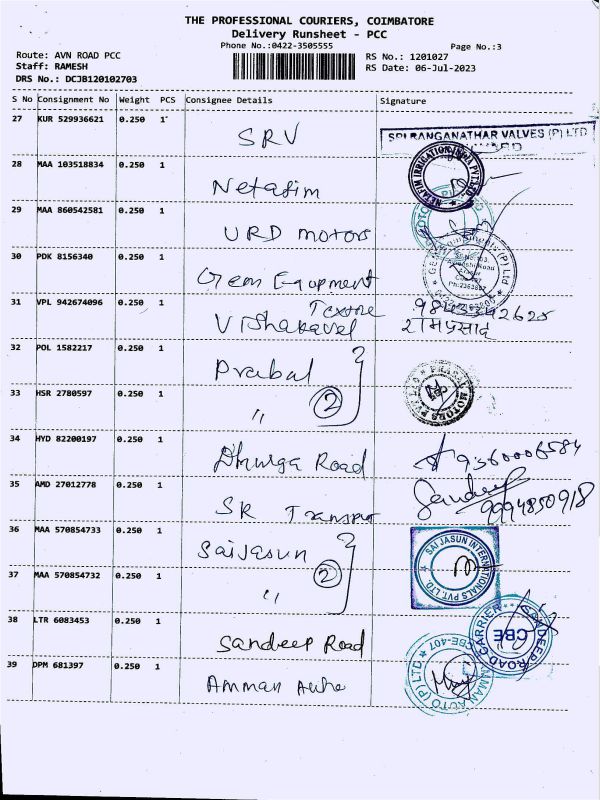 THE PROFESSIONAL COURIERS, COIMBATORE
Delivery Runsheet - PCC
Phone No.:0422-3505555
Page No.:3
Route: AVN ROAD PCC
Staff: RAMESH
DRS No.: DCJB120102703
RS No.: 1201027
RS Date: 06-Jul-2023
S No Consignment No Weight PCS Consignee Details Signature
27 KUR 529936621 0.250 1 SRV
SRI RANGANATHAR VALVES (P) LTD
28 MAA 103518834 0.250 1 Netafim
NETAFIM IRRIGATION INDIA PVT.LTD.
29 MAA 860542581 0.250 1 URD motors
30 PDK 8156340 0.250 1 Gem Equpment
31 VPL 942674096 0.250 1 Vishakavel
रामप्रसाद
32 POL 1582217 0.250 1 Prabal
33 HSR 2780597 0.250 1 " 2
PRABAL MOTORS PVT LTD
34 HYD 82200197 0.250 1 Dhurga Road 9360006584
35 AMD 27012778 0.250 1 SR Transport Sandeep
9994850918
36 MAA 570854733 0.250 1 Saijasun
37 MAA 570854732 0.250 1 " 2
SAI JASUN INTERNATIONALS PVT. LTD.
38 LTR 6083453 0.250 1 Sandeep Road
SANDEEP ROAD CARRIER CBE
39 DPM 681397 0.250 1 Amman Auto
AMMAN AUTO (P) LTD CBE-407